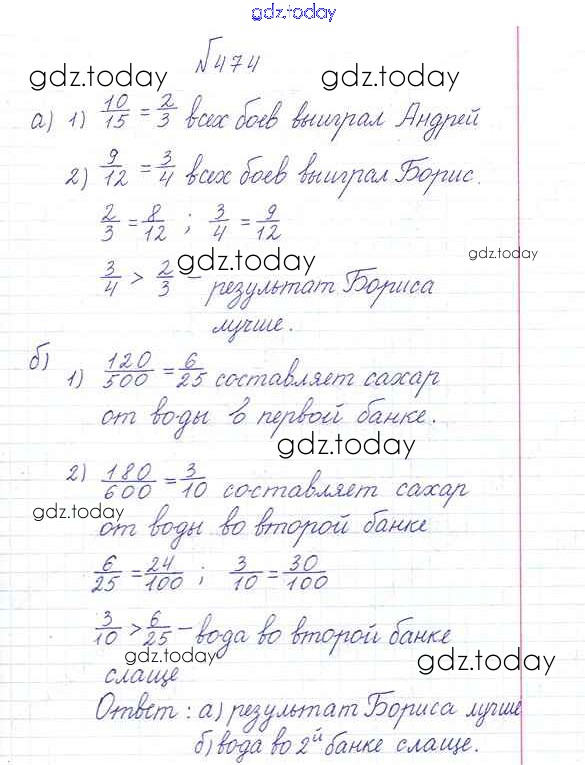 gdz.today
№474
gdz.today gdz.today
а) 1) 10/15 = 2/3 всех боев выиграл Андрей
2) 9/12 = 3/4 всех боев выиграл Борис.
2/3 = 8/12 ; 3/4 = 9/12
gdz.today gdz.today
3/4 > 2/3 – результат Бориса
лучше.
б) 1) 120/500 = 6/25 составляет сахар
от воды в первой банке.
gdz.today
2) 180/600 = 3/10 составляет сахар
gdz.today
от воды во второй банке
6/25 = 24/100 ; 3/10 = 30/100
3/10 > 6/25 – вода во второй банке
gdz.today gdz.today
слаще
Ответ : а) результат Бориса лучше
б) вода во 2й банке слаще.
gdz.today